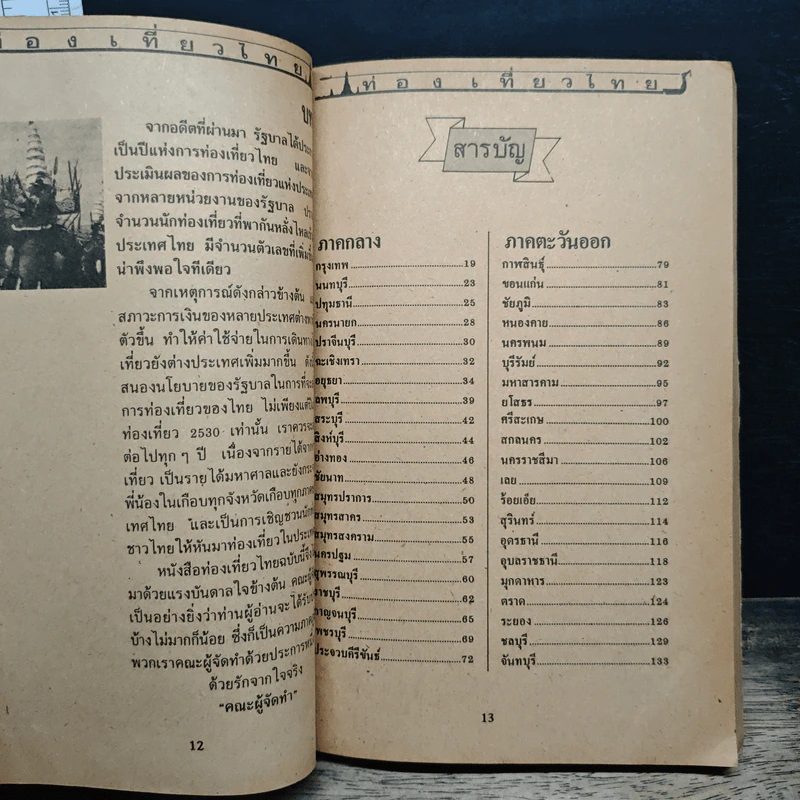 ท่องเที่ยวไทย
จากอดีตที่ผ่านมา รัฐบาลได้
เป็นปีแห่งการท่องเที่ยวไทย
ประเมินผลของการท่องเที่ยวแห่ง
จากหลายหน่วยงานของรัฐบาล
จำนวนนักท่องเที่ยวที่พากันหลั่ง
ประเทศไทย มีจำนวนตัวเลขที่
น่าพึงพอใจทีเดียว
จากเหตุการณ์ดังกล่าวข้างต้น
สภาวะการเงินของหลายประเทศ
ตัวขึ้น ทำให้ค่าใช้จ่ายในการ
เที่ยวยังต่างประเทศเพิ่มมากขึ้น
สนองนโยบายของรัฐบาลในการที่
การท่องเที่ยวของไทย ไม่เพียง
ท่องเที่ยว 2530 เท่านั้น เรา
ต่อไปทุก ๆ ปี เนื่องจากรายได้
เที่ยว เป็นรายได้มหาศาลและ
พี่น้องในเกือบทุกจังหวัดเกือบทุก
เทศไทย และเป็นการเชิญชวน
ชาวไทยให้หันมาท่องเที่ยวใน
หนังสือท่องเที่ยวไทยฉบับนี้
มาด้วยแรงบันดาลใจข้างต้น
เป็นอย่างยิ่งว่าท่านผู้อ่านจะ
บ้างไม่มากก็น้อย ซึ่งก็เป็นความ
พวกเราคณะผู้จัดทำด้วย
ด้วยรักจากใจจริง
"คณะผู้จัดทำ"
12
ท่องเที่ยวไทย
สารบัญ
ภาคกลาง
กรุงเทพ 19
นนทบุรี 23
ปทุมธานี 25
นครนายก 28
ปราจีนบุรี 30
ฉะเชิงเทรา 32
อยุธยา 34
ลพบุรี 39
สระบุรี 42
สิงห์บุรี 44
อ่างทอง 46
ชัยนาท 48
สมุทรปราการ 50
สมุทรสาคร 53
สมุทรสงคราม 55
นครปฐม 57
สุพรรณบุรี 60
ราชบุรี 62
กาญจนบุรี 65
เพชรบุรี 69
ประจวบคีรีขันธ์ 72
ภาคตะวันออก
กาฬสินธุ์ 79
ขอนแก่น 81
ชัยภูมิ 83
หนองคาย 86
นครพนม 89
บุรีรัมย์ 92
มหาสารคาม 95
ยโสธร 97
ศรีสะเกษ 100
สกลนคร 102
นครราชสีมา 106
เลย 109
ร้อยเอ็ย 112
สุรินทร์ 114
อุดรธานี 116
อุบลราชธานี 118
มุกดาหาร 123
ตราด 124
ระยอง 126
ชลบุรี 129
จันทบุรี 133
13